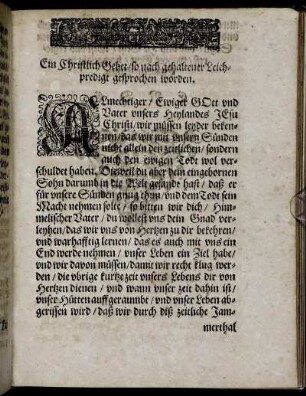 Ein Christlich Gebet / so nach gehaltener Leich-
predigt gesprochen worden.
ALmechtiger / Ewiger GOtt vnd
Vater vnsers Heylandes JEsu
Christi / wir müssen leyder beken-
nen / das wir mit vnsern Sünden
nicht allein den zeitlichen / sondern
auch den ewigen Todt wol ver-
schuldet haben. Dieweil du aber dein eingebornen
Sohn darumb in die Welt gesandt hast / daß er
für vnsere Sünden gnug thun / vnd dem Tode sein
Macht nehmen solte / so bitten wir dich / Him-
melischer Vater / du wollest vns dein Gnad ver-
leyhen / das wir vns von Hertzen zu dir bekehren /
vnd warhafftig lernen / das es auch mit vns ein
End werde nehmen / vnser Leben ein Ziel habe /
vnd wir davon müssen / damit wir recht klug wer-
den / die vbrige kurtze zeit vnsers Lebens dir von
Hertzen dienen / vnd wann vnser zeit dahin ist /
vnser Hütten auffgeraumbt / vnd vnser Leben ab-
gerissen wird / daß wir durch diß zeitliche Jam-
merthal